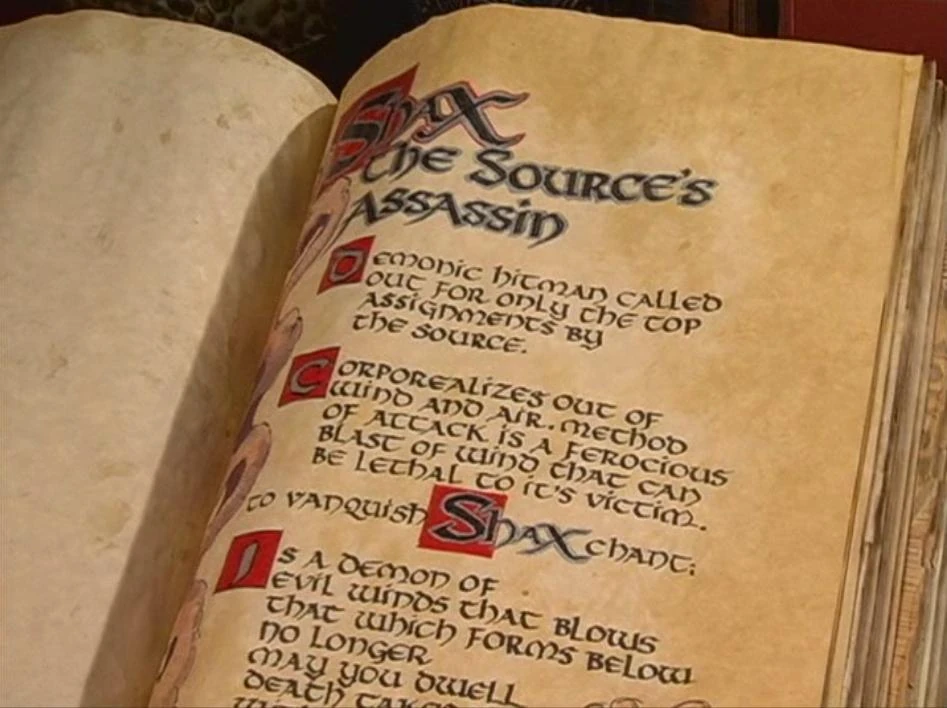 Shax
the Source's
Assassin
Demonic hitman called
out for only the top
assignments by
the Source.
Corporealizes out of
wind and air. Method
of attack is a ferocious
blast of wind that can
be lethal to it's victim.
to vanquish Shax chant:
Is a demon of
evil winds that blows
that which forms below
no longer
may you dwell
death takes